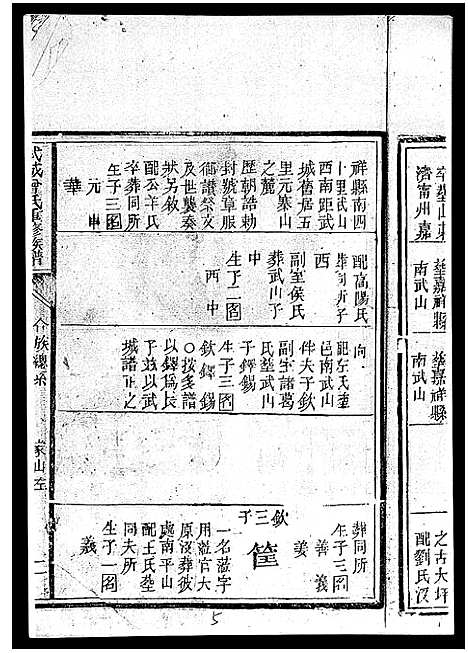 卒葬山東
濟甯州嘉
葬嘉祥縣
南武山
葬嘉祥縣
南武山
之古大坪
配劉氏沒
祥縣南四
十里武山
西南距武
城舊居五
里元寨山
之麓
歷朝誥勅
封號章服
御讚祭文
及世襲奏
狀另敘
配公羊氏
卒葬同所
生子三圖
元 申
華
配高陽氏
西
副室侯氏
葬武山子
申
生子二圖
西 中
向
配左氏葬
邑南武山
伴夫子欽
副室諸葛
氏葬武山
子鐸錫
生子三圖
欽鐸錫
○按多譜
以鐸為長
予兹以武
城譜正之
葬同所
生子三圖
善 義
姜
欽三子
筐
一名蓝字
用蓝官大
原沒葬彼
處南平山
配王氏葬
同夫所
生子一圖
義
武城曾氏重修族譜
合族總系
萊山至
二
5